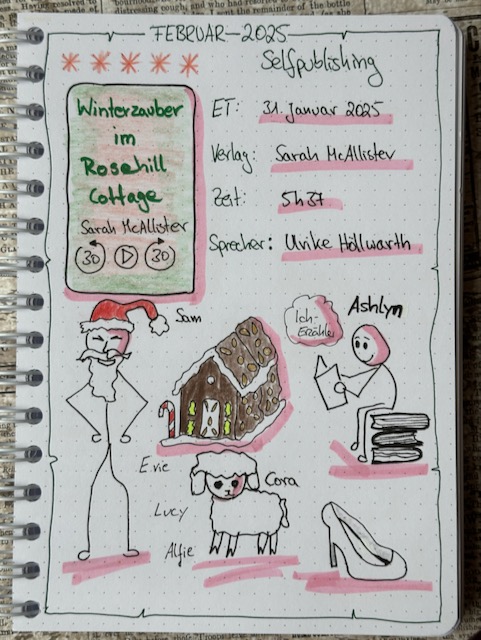 FEBRUAR 2025
Selfpublishing
Winterzauber
im
Rosehill
Cottage
Sarah McAllister
30 30
ET: 31. Januar 2025
Verlag: Sarah McAllister
Zeit: 5h37
Sprecher: Ulrike Höllwarth
Sam
Ich-
Erzähler
Ashlyn
Evie
Cora
Lucy
Alfie